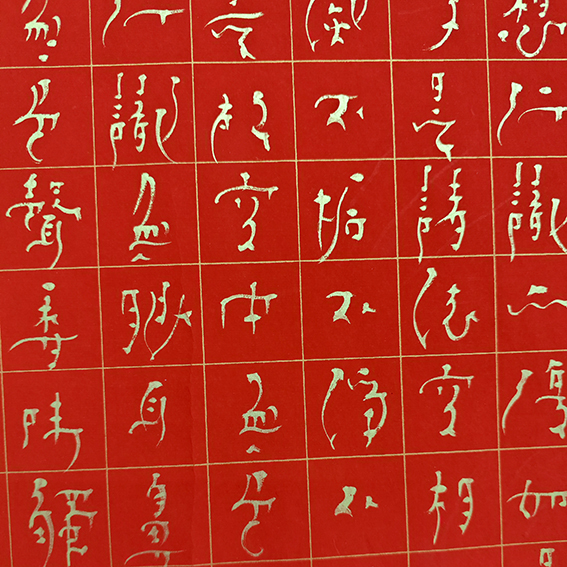 想行識亦復如
子是諸法空相
滅不垢不淨不
是故空中無色
行識無眼耳鼻
無色聲香味觸